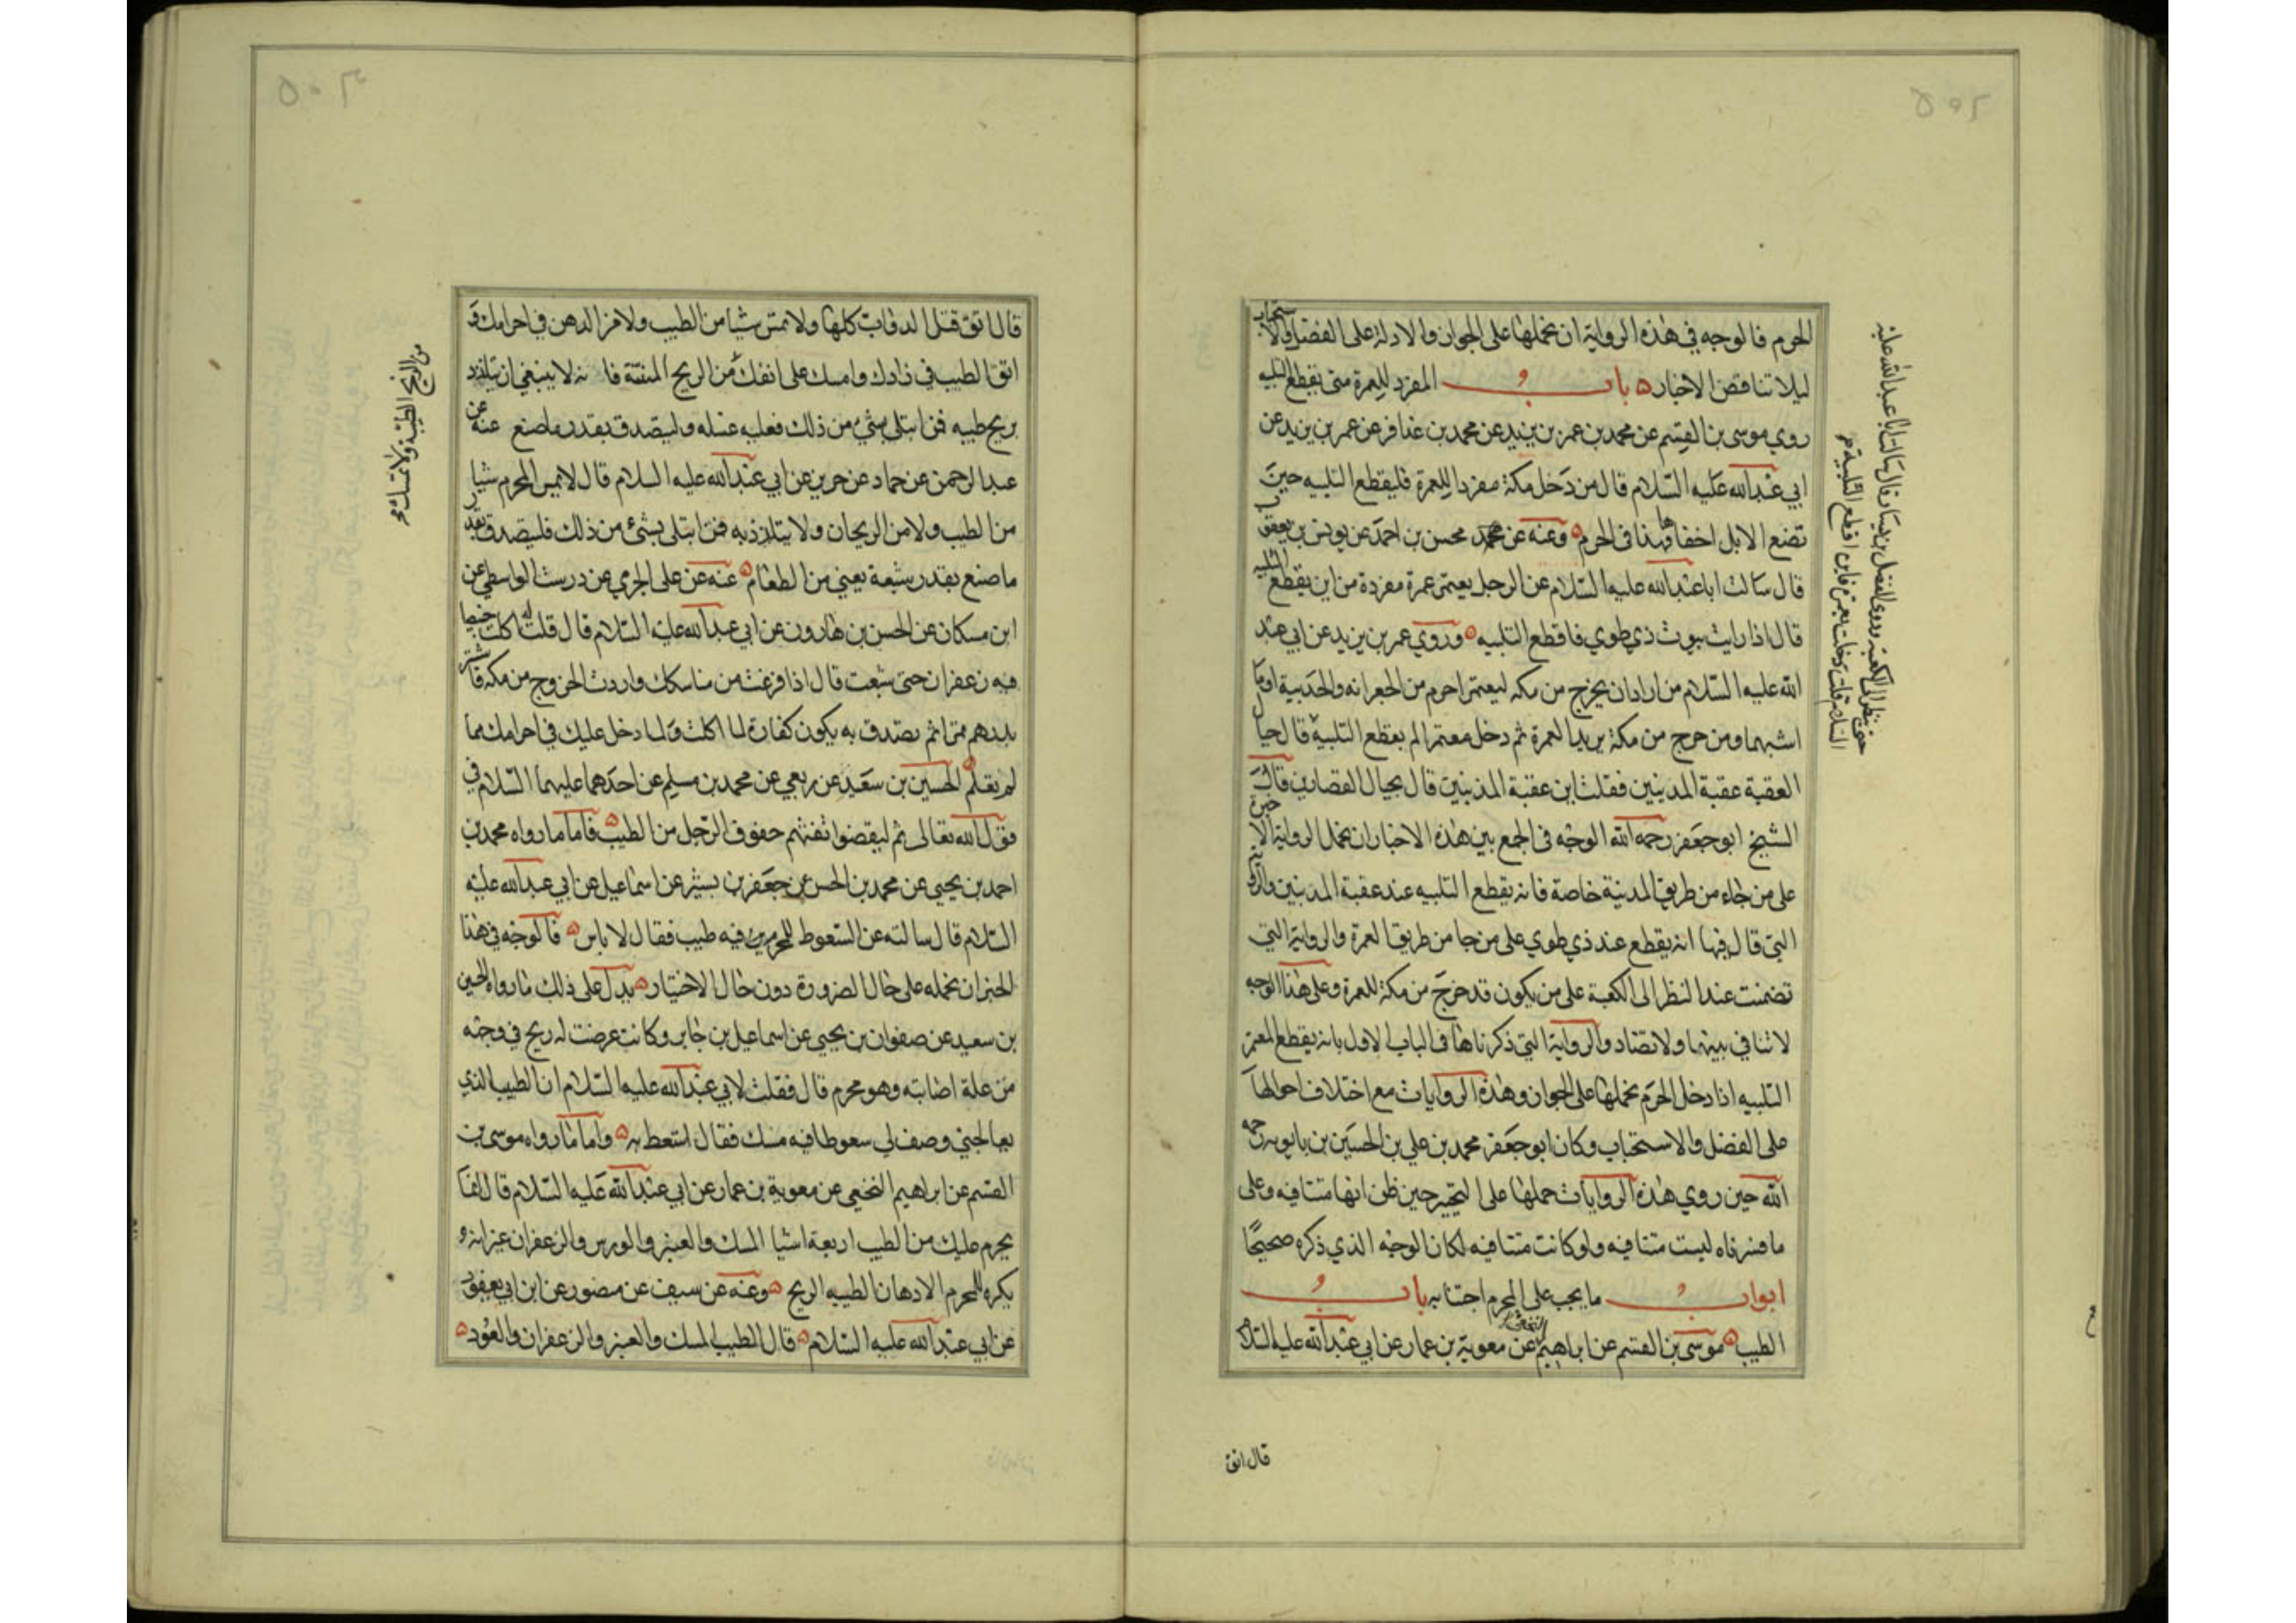 ٥٠٢
الحرم فالوجه في هذه الرواية ان نحملها على الجواز والاولة على الفضل والاستحباب
ليلا تناقض الاخبار ه باب المفرد للعمرة متى يقطع التلبيه
روي موسى بن القسم عن محمد بن عمر بن يزيد عن محمد بن عذافر عن عمر بن يزيد عن
ابي عبدالله عليه السلام قال من دخل مكة مفردا للعمرة فليقطع التلبيه حين
تضع الابل اخفافها في الحرم ه وعنه عن محسن بن احمد عن يونس بن يعقوب
قال سالت ابا عبدالله عليه السلام عن الرجل يعتمر عمرة مفردة من اين يقطع التلبيه
قال اذا رايت بيوت ذي طوي فاقطع التلبيه ه وروي عمر بن يزيد عن ابي عبد
الله عليه السلام من اراد ان يخرج من مكه ليعتمر احرم من الجعرانه والحديبية او ما
اشبهما ومن خرج من مكة يريد العمرة ثم دخل معتمرا لم يقطع التلبية
حتى ينظر الى الكعبة وروى الفضيل بن يسار قال سالت ابا عبدالله عليه
السلام قلت دخلت بعمرة فاين اقطع التلبية
قال حيال
العقبة عقبة المدينين فقلت اين عقبة المدينين قال بحيال القصارين قال
الشيخ ابو جعفر رحمه الله الوجه في الجمع بين هذه الاخبار ان نحمل الرواية الاخيرة
على من جاء من طريق المدينة خاصة فانه يقطع التلبيه عند عقبة المدينين والرواية
التي قال فيها انه يقطع عند ذي طوي على من جا من طريق العرة والرواية التي
تضمنت عند النظر الى الكعبة على من يكون قد خرج من مكة للعمرة وعلى هذا الوجه
لا تنافي بينها ولا تضاد والرواية التي ذكرناها في الباب الاول بانه يقطع المعتمر
التلبيه اذا دخل الحرم نحملها على الجواز وهذه الروايات مع اختلاف احوالها
على الفضل والاستحباب وكان ابو جعفر محمد بن علي بن الحسين بن بابويه رحمه
الله حين روي هذه الروايات حملها على التخيير حين ظن انها متنافيه وعلى
ما فسرناه ليست متنافيه ولو كانت متنافيه لكان الوجه الذي ذكره صحيحًا
ابواب ما يجب على المحرم اجتنابه باب
الطيب ه موسى بن القسم عن ابراهيم النخعي عن معوية بن عمار عن ابي عبدالله عليه السلام
قال اتق
٥٠٣
قال اتق قتل الدواب كلها ولا تمس شيا من الطيب ولا من الدهن في احرامك و
اتق الطيب في زادك وامسك على انفك من الريح الطيبة ولا تمسك من الريح المنتنة فانه لا ينبغي ان يتلذذ
بريح طيبه فمن ابتلي بشئ من ذلك فعليه غسله وليتصدق بقدر ما صنع عنه عن
عبد الرحمن عن حماد عن حريز عن ابي عبدالله عليه السلام قال لا يمس المحرم شيا
من الطيب ولا من الريحان ولا يتلذذ به فمن ابتلى بشئ من ذلك فليتصدق بقدر
ما صنع بقدر شبعه يعني من الطعام ه عنه عن علي الجرمي عن درست الواسطي عن
ابن مسكان عن الحسن بن هارون عن ابي عبدالله عليه السلام قال قلت له اكلت خبيصا
فيه زعفران حتى شبعت قال اذا فرغت من مناسكك واردت الخروج من مكه فاشتر
بدرهم تمرا ثم تصدق به يكون كفارة لما اكلت ولما دخل عليك في احرامك مما
لم تعلم ه الحسين بن سعيد عن ربعي عن محمد بن مسلم عن احدهما عليهما السلام في
قول الله تعالى ثم ليقضوا تفثهم حفوف الرجل من الطيب ه فاما ما رواه محمد بن
احمد بن يحيي عن محمد بن الحسن عن جعفر بن بشير عن اسماعيل عن ابي عبدالله عليه
السلام قال سالته عن السعوط للمحرم فيه طيب فقال لا باس ه فالوجه في هذا
الخبر ان نحمله على حال الضرورة دون حال الاختيار ه يدل على ذلك ما رواه الحسين
بن سعيد عن صفوان بن يحيي عن اسماعيل بن جابر وكانت عرضت له ريح في وجهه
من علة اصابته وهو محرم قال فقلت لابي عبدالله عليه السلام ان الطبيب الذي
يعالجني وصف لي سعوطا فيه مسك فقال استعط به ه واما ما رواه موسى بن
القسم عن ابراهيم النخعي عن معوية بن عمار عن ابي عبدالله عليه السلام قال انما
يحرم عليك من الطيب اربعة اشيا المسك والعنبر والورس والزعفران غير انه و
يكره للمحرم الادهان الطيبه الريح ه وعنه عن سيف عن منصور عن ابن ابي يعفور
عن ابي عبدالله عليه السلام ه قال الطيب المسك والعنبر والزعفران والعود ه